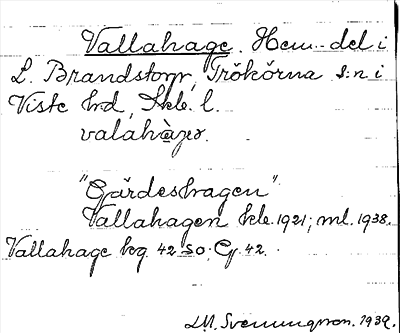 Vallahage. Hem.-del i
L. Brandstorp, Trökörna s:n i
Viste hd, Skbl. l.
valahàgər.
"Gärdeshagen"
Vallahagen kle. 1921; ml. 1938.
Vallahage kg 42 SO. Cf. 42.
Svenungsson. 1939.